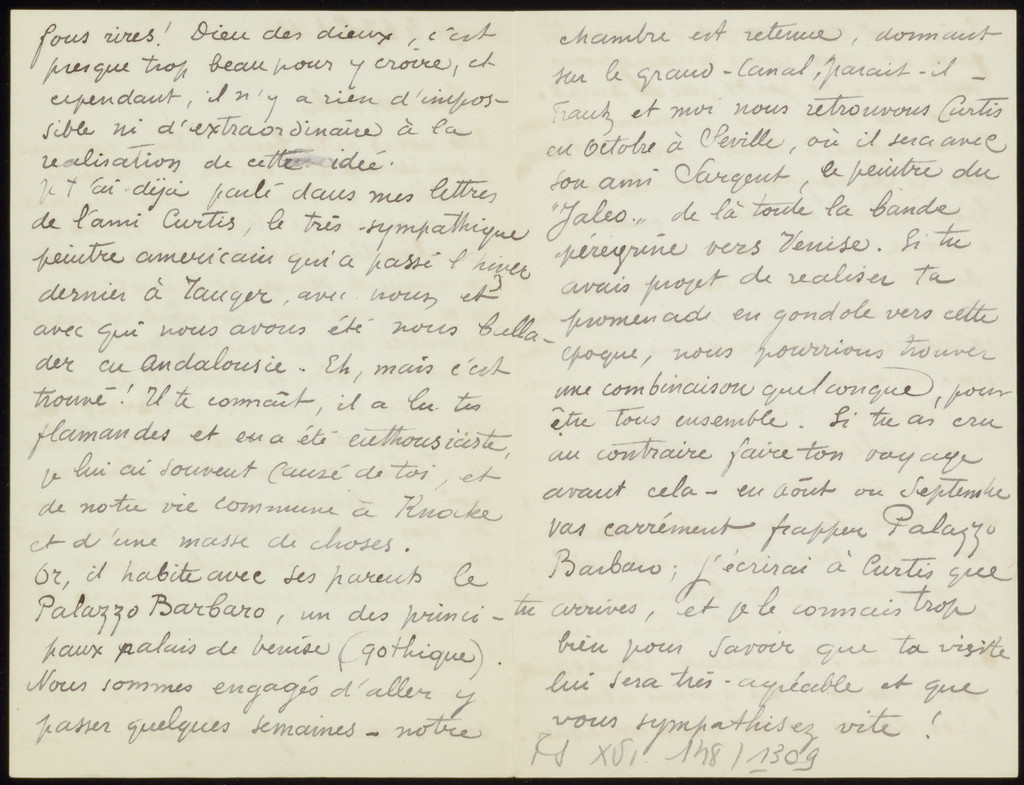 fous rires! Dieu des dieux, c'est
presque trop beau pour y croire, et
cependant, il n'y a rien d'impos-
sible ni d'extraordinaire à la
realisation de cette idée.
Je t'ai déjà parlé dans mes lettres
de l'ami Curtis, le très-sympathique
peintre americain qui a passé l'hiver
dernier à Tanger, avec nous, et
avec qui nous avons été nous balla-
der en Andalousie. Eh, mais c'est
trouvé! Il te connait, il a lu tes
flamandes et en a été enthousiaste,
je lui ai souvent causé de toi, et
de notre vie commune à Knocke
et d'une masse de choses.
Or, il habite avec ses parents le
Palazzo Barbaro, un des princi-
paux palais de Venise (gothique).
Nous sommes engagés d'aller y
passer quelques semaines - notre
chambre est retenue, donnant
sur le grand-Canal, parait-il -
Frantz et moi nous retrouvons Curtis
en Octobre à Séville, où il sera avec
son ami Sargent, le peintre du
"Jaleo", de là toute la bande
pérégrine vers Venise. Si tu
avais projet de realiser ta
promenade en gondole vers cette
époque, nous pourrions trouver
une combinaison quelconque, pour
être tous ensemble. Si tu as cru
au contraire faire ton voyage
avant cela - en Août ou Septembre
vas carrément frapper Palazzo
Barbaro; j'écrirai à Curtis que
tu arrives, et je le connais trop
bien pour savoir que ta visite
lui sera très-agréable et que
vous sympathisez vite!
FS XVI 148/1309